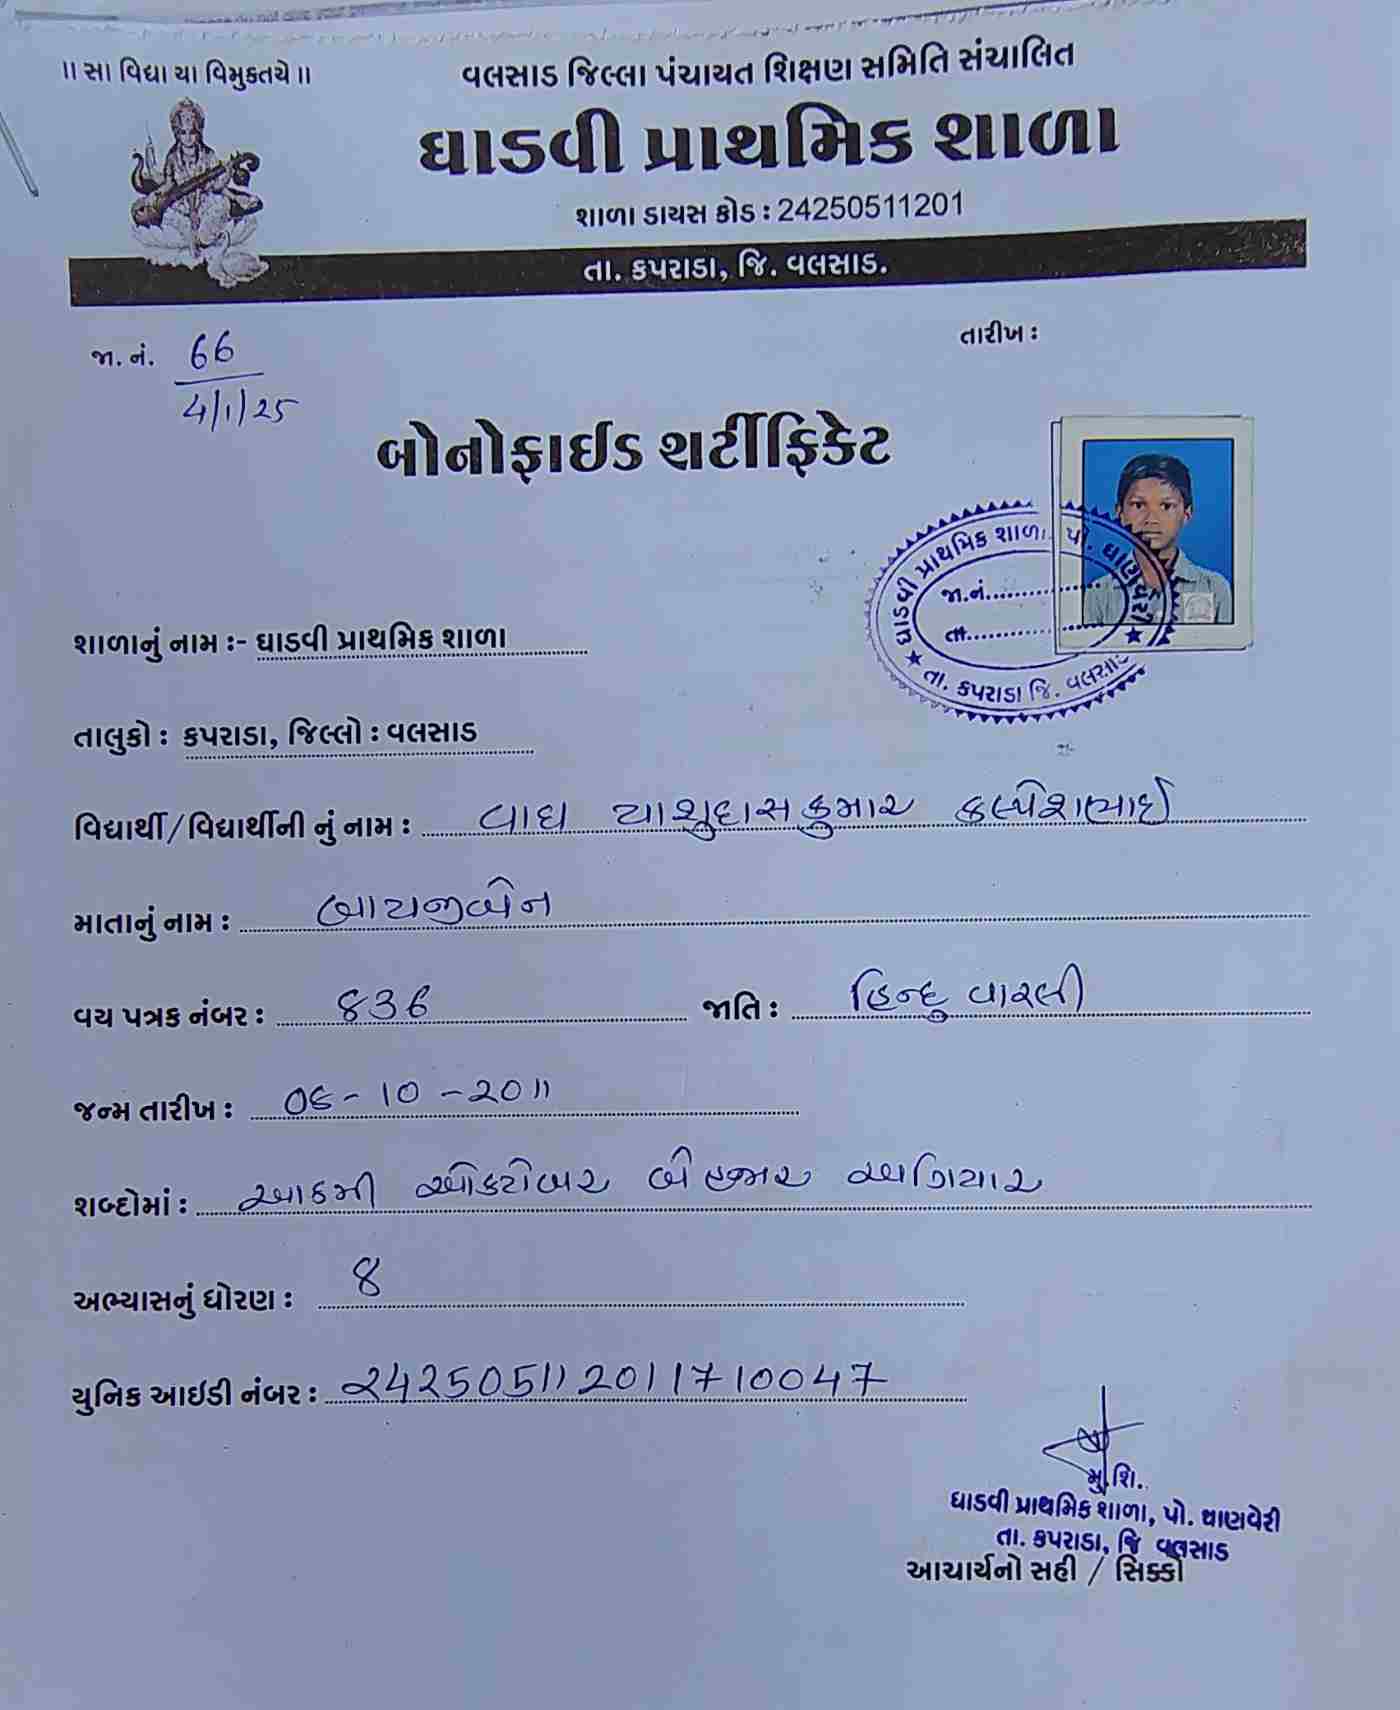 ॥ સા વિદ્યા યા વિમુક્તયે ॥
વલસાડ જિલ્લા પંચાયત શિક્ષણ સમિતિ સંચાલિત
ઘાડવી પ્રાથમિક શાળા
શાળા ડાયસ કોડ : 24250511201
તા. કપરાડા, જિ. વલસાડ.
જા. નં. 66
4/1/25
તારીખ :
બોનોફાઈડ શર્ટીફિકેટ
ઘાડવી પ્રાથમિક શાળા પો. થાણવેરી
જા.નં.
તા.
તા. કપરાડા જિ. વલસાડ
શાળાનું નામ :- ઘાડવી પ્રાથમિક શાળા
તાલુકો : કપરાડા, જિલ્લો : વલસાડ
વિદ્યાર્થી/વિદ્યાર્થીની નું નામ : વાઘ યાશુદાસકુમાર કલ્પેશભાઈ
માતાનું નામ : બાયજીબેન
વય પત્રક નંબર : ૪૩૬ જાતિ : હિન્દુ વારલી
જન્મ તારીખ : ૦૮-૧૦-૨૦૧૧
શબ્દોમાં : આઠમી ઓક્ટોબર બે હજાર અગિયાર
અભ્યાસનું ધોરણ : ૪
યુનિક આઈડી નંબર : 242505112011710047
મુ.શિ.
ઘાડવી પ્રાથમિક શાળા, પો. થાણવેરી
તા. કપરાડા, જિ વલસાડ
આચાર્યનો સહી / સિક્કો